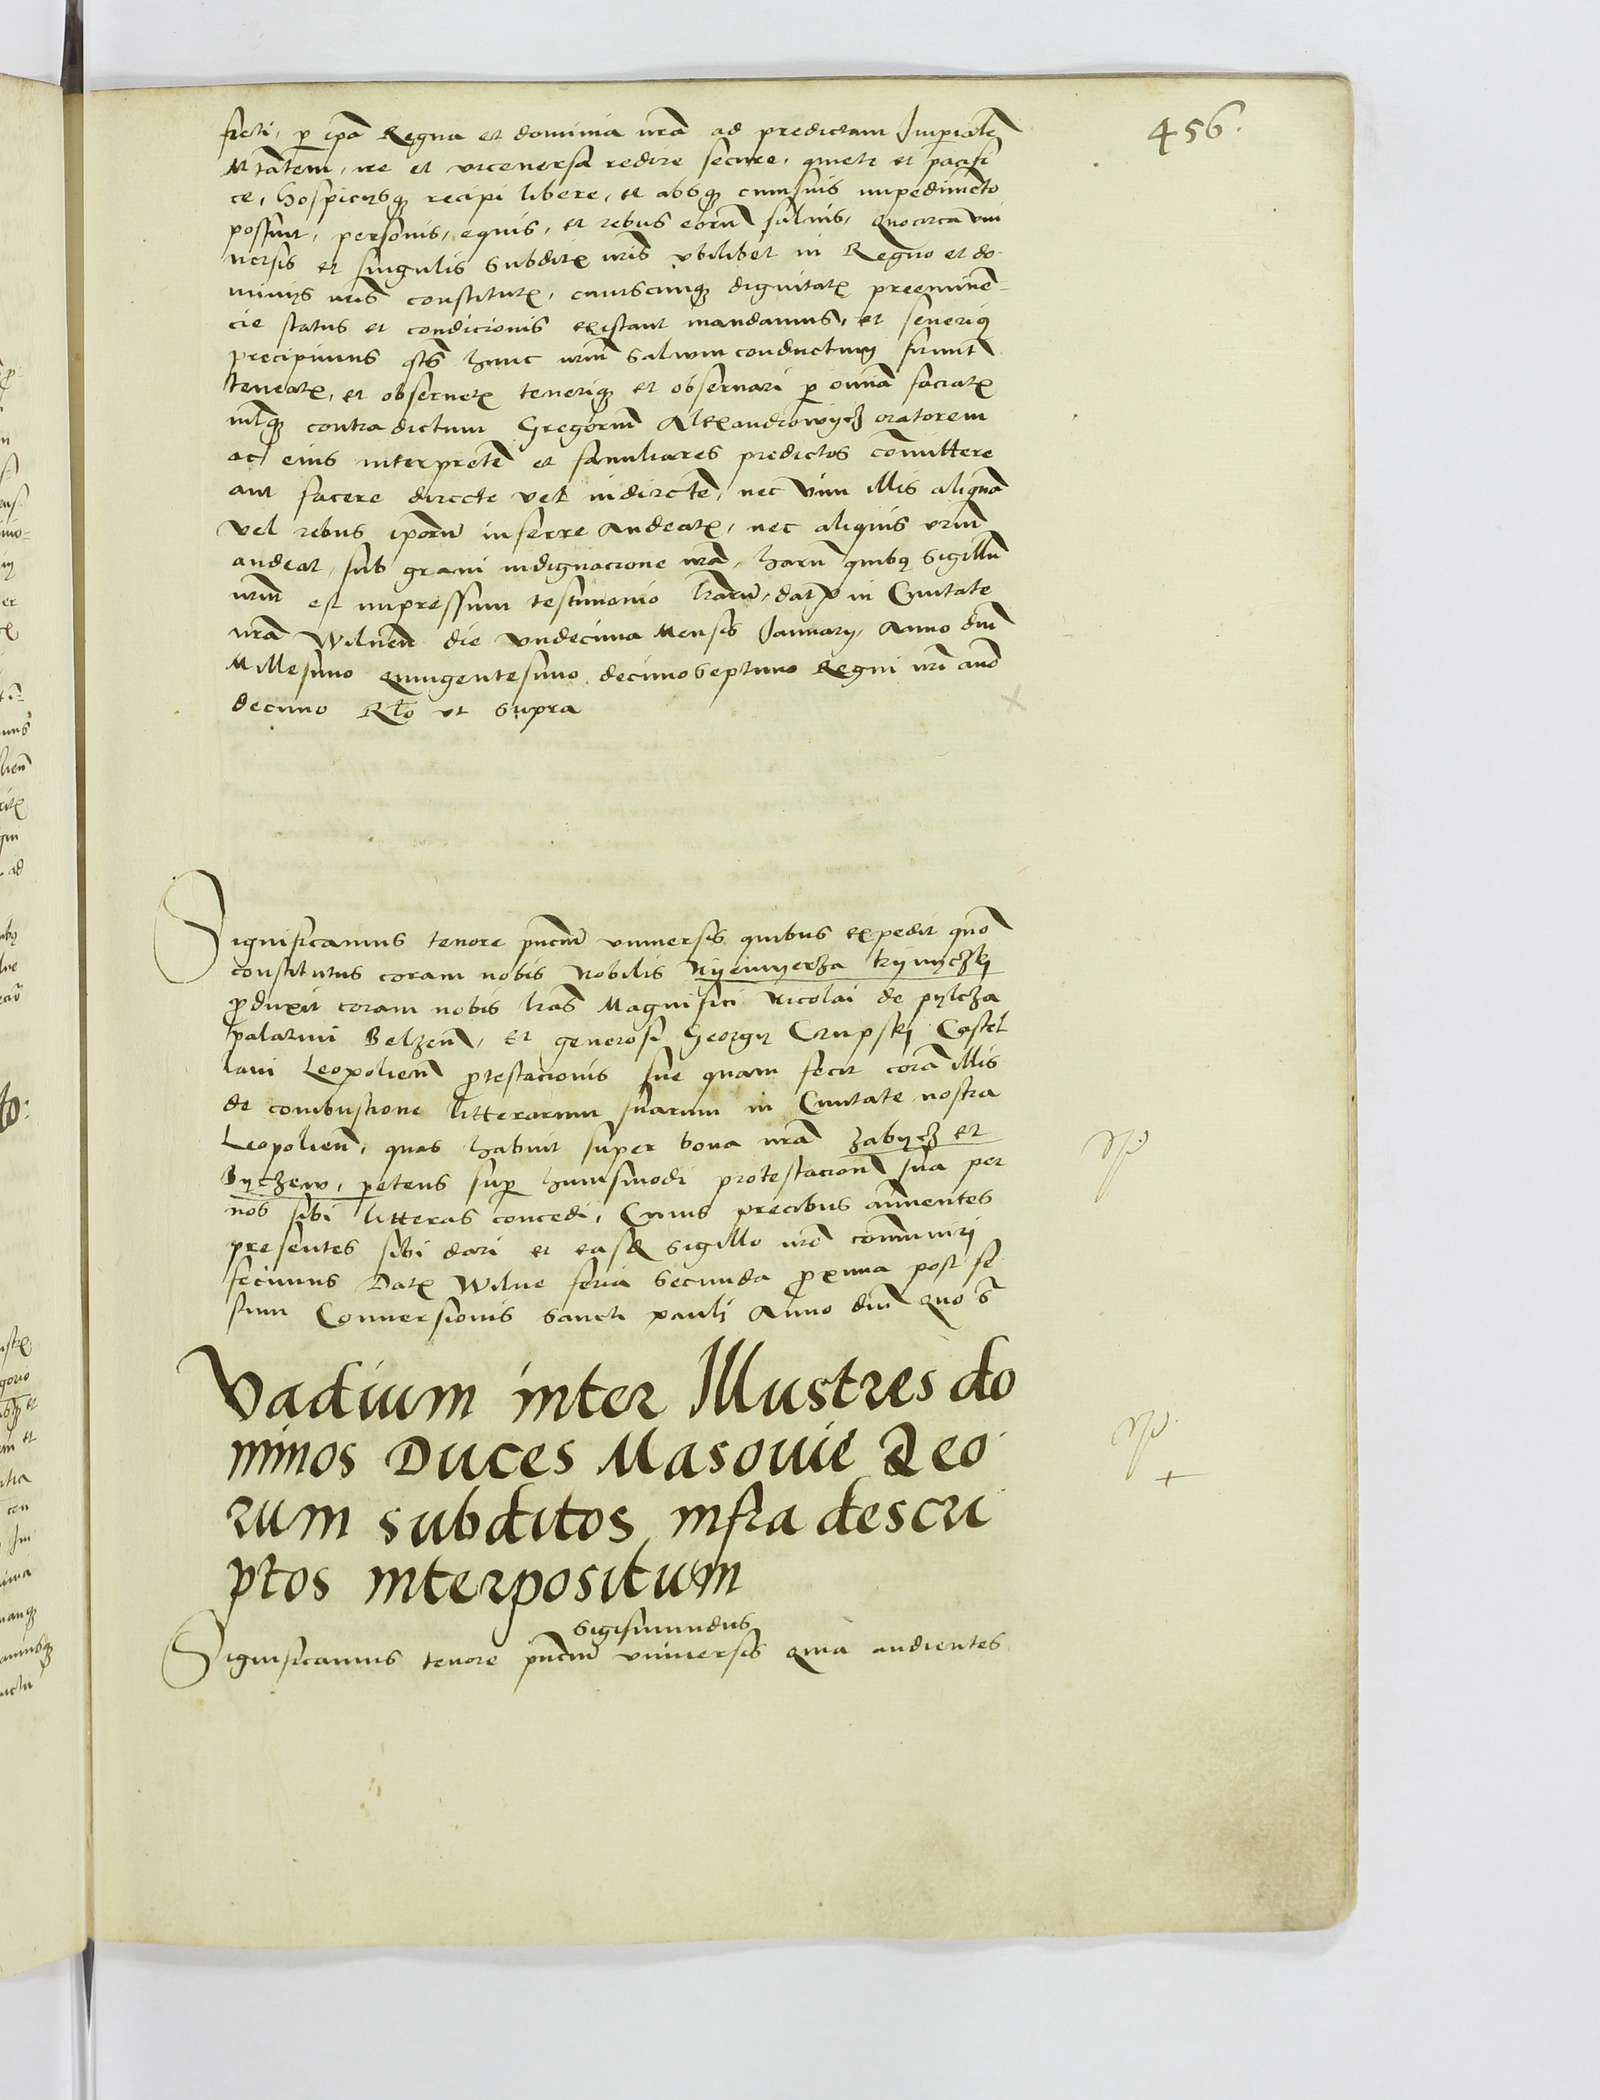 456.
freti, p ipa Regna et dominia nrã ad predictam Imperialẽ
Mtãtem, ire et viceversa redire secure, quiete et pacifi
ce, hospicysq recipi libere, et absq cuiusuis impedimẽto
possint, personis, equis, et rebus eorũ saluis, Quocirca vni
uersis et singulis subditis nris vbilibet in Regno et do
minijs nris constitutis, cuiuscunq dignitatis preeminẽ-
cie status et condicionis existant mandamus, et seueriq
precipimus qts hunc nrm saluum conductum firmit
teneatis, et obseruetis tenerique et obseruari p omnia faciatis
nilq contra dictum Gregoriũ Alexandrowycz oratorem
ac eius interpretẽ et familiares predictos cõmittere
aut facere directe vel indirectẽ, nec vim illis aliquã
vel rebus ipsorũ inferre Audeatis, nec aliquis vrm
audeat, sub graui indignacione nrã, harũ quibq Sigillũ
nrm est impressum testimonio lrarũ, dat in Ciuitate
nrã Wilneñ die vndecima Mensis Januarij, Anno dni
Millesimo Quingentesimo decimoseptimo Regni nri ano
decimo Rlo vt supra
Significamus tenore pntium vniuersis quibus expedit quõ
constitutus coram nobis Nobilis Nyemyerza krynyczkj
produxit coram nobis lras Magnifici Nicolai de pylcza
palatini Belzeñ, et generosi Georgij Crupskj Castel
lani Leopolieñ protestacionis sue quam fecit corã illis
de combustione litterarum suarum in Ciuitate nostra
Leopolieñ, quas habuit super bona nrã zabycz et
Byczew, petens sup huiusmodi protestacionẽ sua per
nos sibi litteras concedi, Cuius precibus annuentes
presentes sibi dari et easdẽ sigillo nro cõmunirj
fecimus Datis Wilne feria secunda proxima post fe
stum Conuersionis sancti paulj Anno dni quo sª
Vadium inter Illustres do
minos Duces Masouie & eo
rum subditos infra descri
ptos interpositum
Sigismundus
Significamus tenore pntium vniuersis Quia audientes